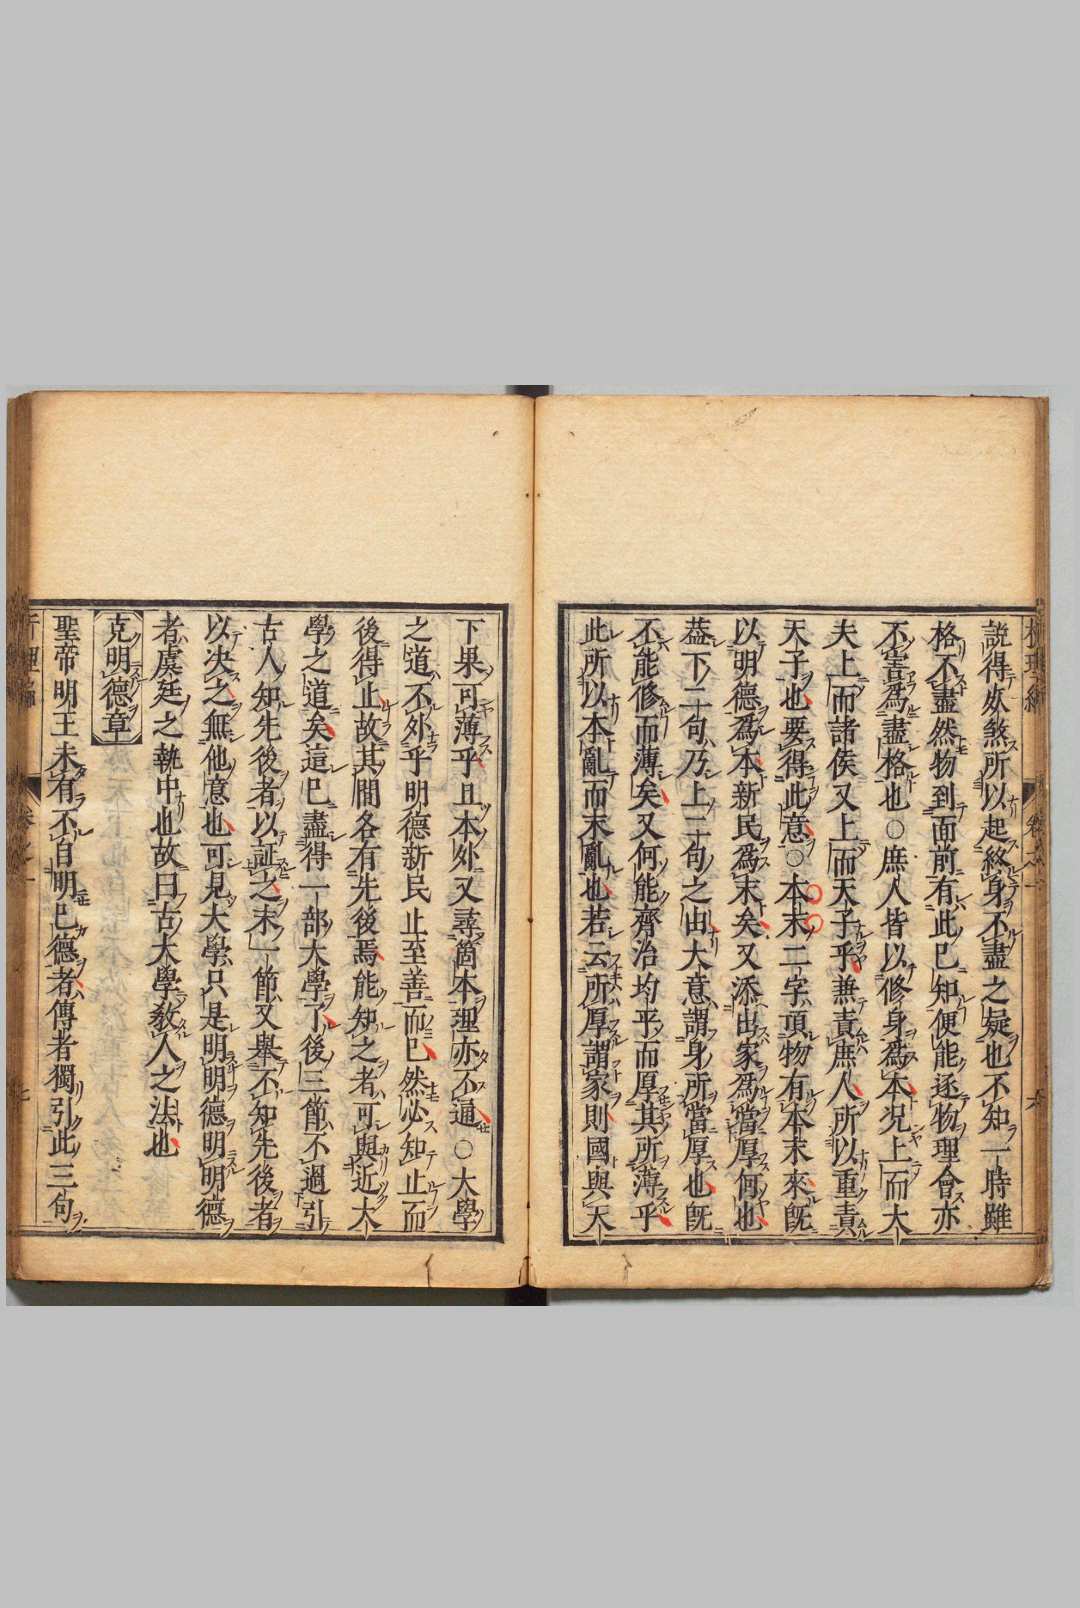 說得欸煞所以起終身不盡之疑也不知一時雖
格不盡然物到面前有此已知便能逐物理會亦
不害爲盡格也○庶人皆以修身爲本况上而大
夫上而諸侯又上而天子乎無責庶人所以重責
天子也要得此意○本末二字項物有本末來既
以明德爲本新民爲末矣又添出家爲當厚何也
蓋下二句乃上二句之由大意謂身所當厚也既
不能修而薄矣又何能齊治均平而厚其所薄乎
此所以本亂而末亂也若云所厚謂家則國與天
下果可薄乎且本外又尋箇本理亦不通○大學
之道不外乎明德新民止至善而已然必知止而
後得止故其間各有先後焉能知之者可與近大
學之道矣這已盡得一部大學了後三節不過引
古人知先後者以証之末一節又舉不知先後者
以决之無他意也可見大學只是明明德明明德
者虞廷之執中也故曰古大學教人之法也
克明德章
聖帝明王未有不自明已德者傳者獨引此三句